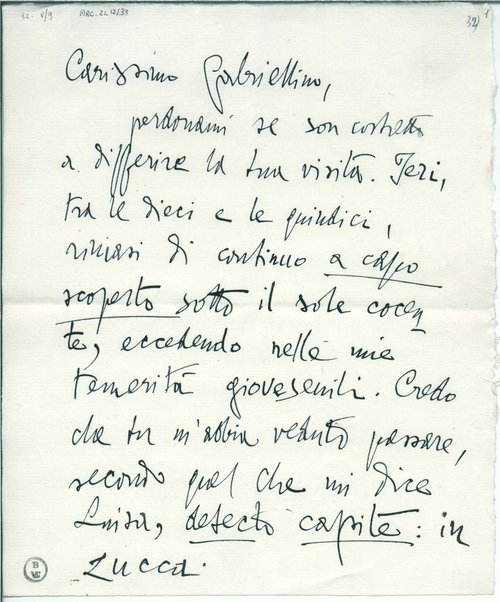 32. 8/9 ARC. 21.12/33
32 1
Carissimo Gabriellino,
perdonami se son costretto
a differire la tua visita. Ieri,
tra le dieci e le quindici,
rimasi di continuo a capo
scoperto sotto il sole cocen
te, eccedendo nelle mie
temerità giovesenili. Credo
che tu m'abbia veduto passare,
secondo quel che mi dice
Luisa, detecto capite: in
zucca.